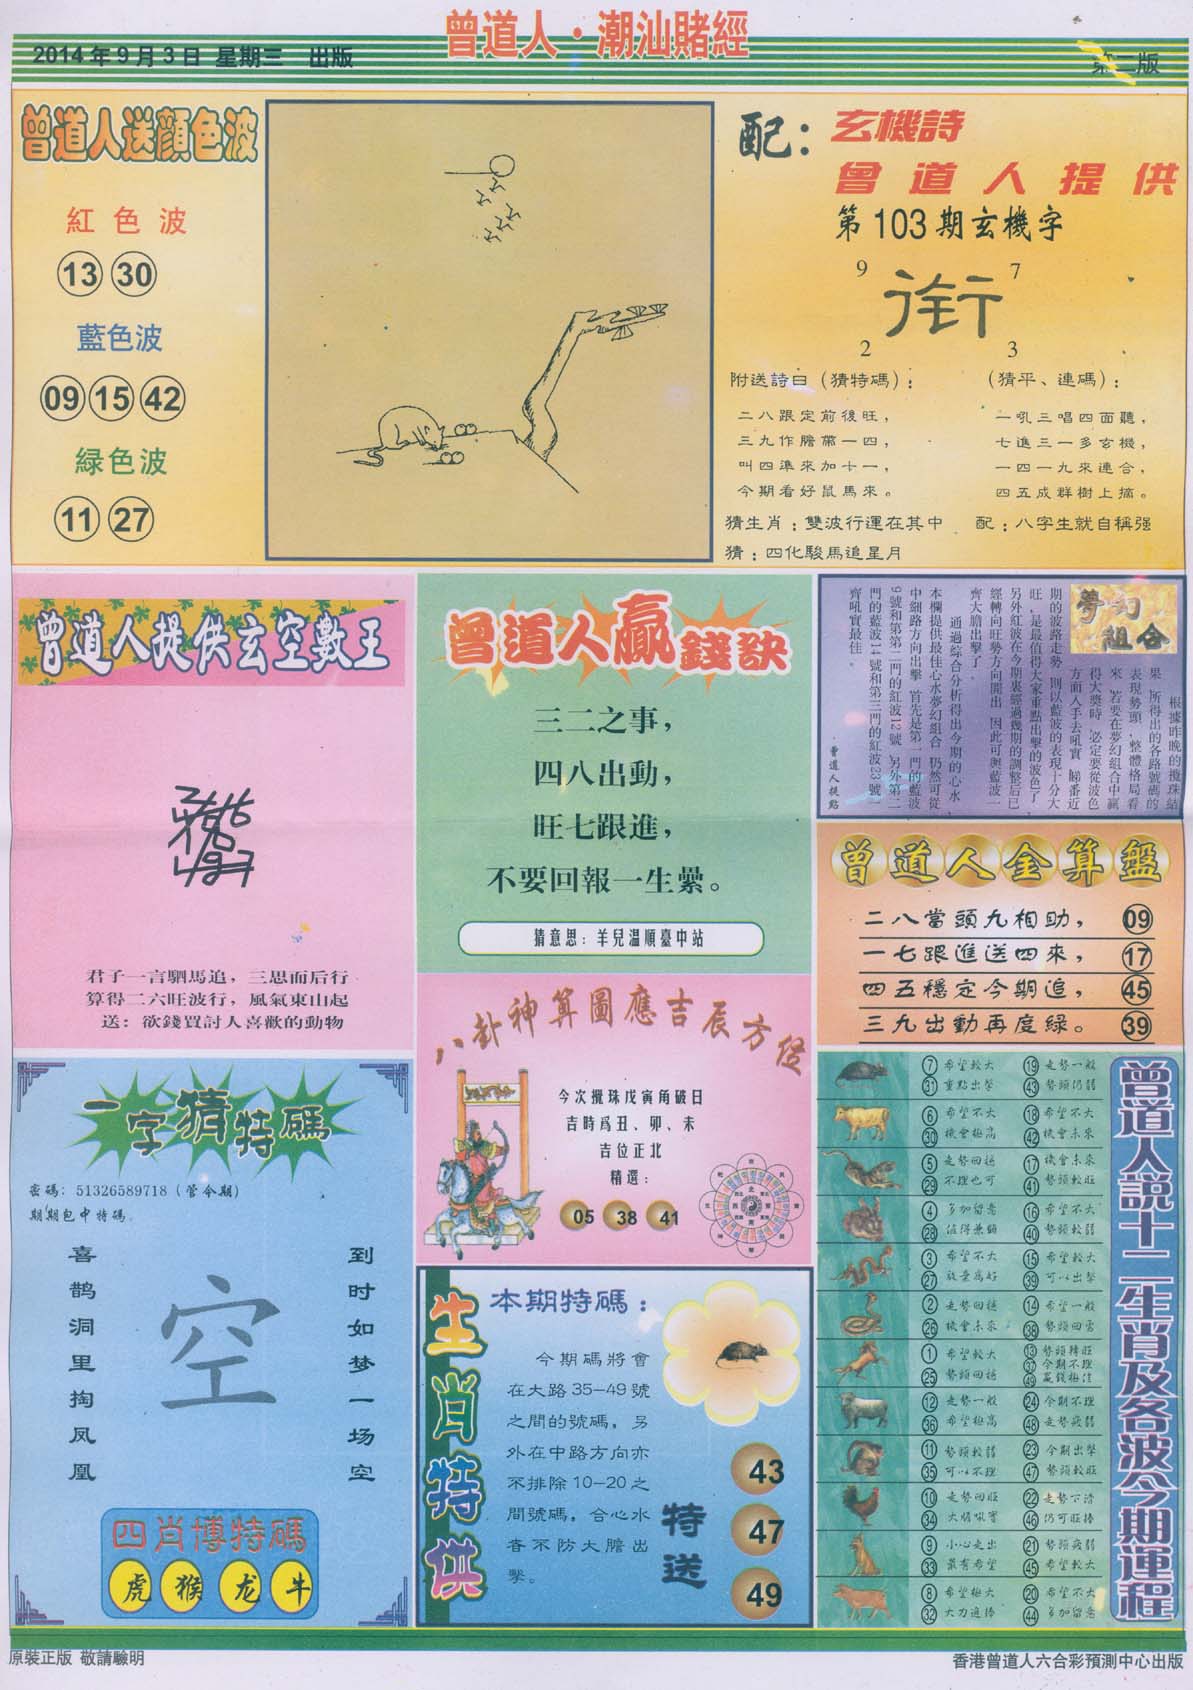 曾道人·潮汕賭經
2014年9月3日 星期三 出版
第二版
曾道人送顔色波
紅色波
13 30
藍色波
09 15 42
緑色波
11 27
配：
玄機詩
曾道人提供
第103期玄機字
9 7
衔
2 3
附送詩曰（猜特碼）：
二八跟定前後旺，
三九作膽第一四，
叫四準來加十一，
今期看好鼠馬來。
（猜平、連碼）：
一吼三唱四面聽，
七進三一多玄機，
一四一九來連合，
四五成群樹上摘。
猜生肖：雙波行運在其中
配：八字生就自稱强
猜：四化駿馬追星月
曾道人提供玄空數王
君子一言駟馬追，三思而后行
算得二六旺波行，風氣東山起
送：欲錢買討人喜歡的動物
曾道人贏錢訣
三二之事，
四八出動，
旺七跟進，
不要回報一生纍。
猜意思：羊兒温順臺中站
夢幻組合
根據昨晚的攪珠結
果，所得出的各路號碼的
表現勢頭，整體格局看
來，若要在夢幻組合中贏
得大獎時，必定要從波色
方面入手去吼實，歸番近
期的波路走勢，則以藍波的表現十分大
旺，是最值得大家重點出擊的波色了，
另外紅波在今期裏經過幾期的調整后已
經轉向旺勢方向開出，因此可與藍波一
齊大膽出擊了。
通過綜合分析得出今期的心水，
本欄提供最佳心水夢幻組合，仍然可從
中細路方向出擊，首先是第一門的藍波
9號和第第二門的紅波12號，另外第二
門的藍波14號和第三門的紅波23號一
齊吼實最佳。
曾道人提點
曾道人金算盤
二八當頭九相助， 09
一七跟進送四來， 17
四五穩定今期追， 45
三九出動再度緑。 39
八卦神算圖應吉辰方位
今次攪珠戊寅角破日
吉時爲丑、卯、未
吉位正北
精選：
05 38 41
一字猜特碼
密碼：51326589718（管今期）
期期包中特碼。
喜鹊洞里掏凤凰
空
到时如梦一场空
四肖博特碼
虎 猴 龙 牛
生肖特供
本期特碼：
今期碼將會
在大路35—49號
之間的號碼，另
外在中路方向亦
不排除10—20之
間號碼，合心水
者不防大膽出
擊。
特送
43
47
49
⑦希望較大 ⑲走勢一般
㉛重點出擊 ㊸勢頭仍弱
⑥希望不大 ⑱希望不大
㉚機會極高 ㊷機會未來
⑤走勢回穩 ⑰機會未來
㉙不理也可 ㊶勢頭較旺
④多加留意 ⑯希望不大
㉘值得兼顧 ㊵勢頭較弱
③希望不大 ⑮希望較大
㉗放棄爲好 ㊴可以出擊
②走勢回穩 ⑭希望一般
㉖機會未來 ㊳勢頭回落
①希望較大 ⑬勢頭轉旺
㊲今期不理
㉕勢頭回穩 ㊾贏錢極佳
⑫走勢一般 ㉔今期不理
㊱希望極高 ㊽走勢疲弱
⑪勢頭較弱 ㉓今期出擊
㉟可以不理 ㊼勢頭較旺
⑩走勢回旺 ㉒走勢下滑
㉞大膽吼實 ㊻仍可旺捧
⑨小心走出 ㉑勢頭疲弱
㉝最有希望 ㊺希望較大
⑧希望極大 ⑳希望不大
㉜大力追捧 ㊹多加留意
曾道人說十二生肖及各波今期運程
原裝正版 敬請驗明
香港曾道人六合彩預測中心出版